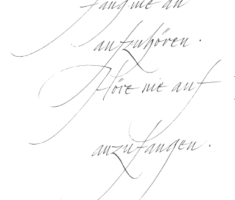 Fang nie an
aufzuhören.
Höre nie auf
anzufangen.